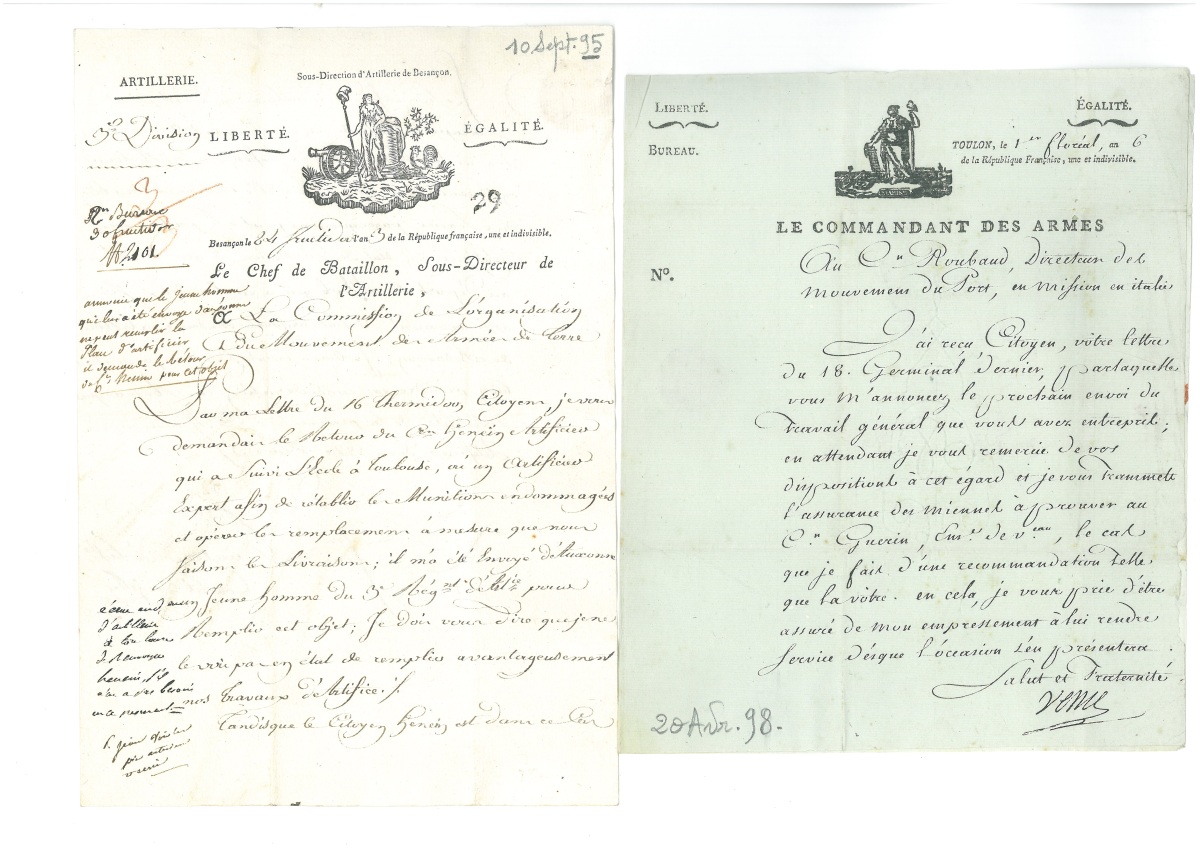 10. Sept. 95
ARTILLERIE.
Sous-Direction d'Artillerie de Besançon.
3e Division
LIBERTÉ.
ÉGALITÉ.
29
3
Bureau
30 fructidor
2101
Besançon le 24 fructidor l'an 3 de la République française, une et indivisible.
Le Chef de Bataillon, Sous-Directeur de
l'Artillerie,
annonce que le jeune homme
qui lui a été envoyé d'auxonne
ne peut remplir la
Place d'artificier
il demande le retour
de Cn henin pour cet objet
A La Commission de L'organisation
& du Mouvement des Armées de Terre
Par ma Lettre du 16 thermidor, Citoyens, je vous
demandais le Retour du Cen henein Artificier
qui a Suivi L'Ecole à Toulouse, où un Artificier
Expert afin de rétablir les Munitions endommagées
et opérer les remplacement à mesure que nous
faisons les Livraisons; il m'a été Envoyé d'Auxonne
un Jeune homme du 3e Régnt. d'Art.ie pour
Remplir cet objet; Je dois vous dire que je ne
le vois pas en état de remplir avantageusement
nos Travaux d'Artifice./.
Tandisque le Citoyen henein est dans ce Cas
d'artillerie
à toulouse
de Renvoyer
henein, s'il
n'en a pas besoin
en ce moment
LIBERTÉ.
ÉGALITÉ.
BUREAU.
TOULON, le 1er floréal, an 6
de la République Française, une et indivisible.
LE COMMANDANT DES ARMES
No.
Au Cen Roubaud, Directeur des
Mouvemens du Port, en mission en italie
J'ai reçu Citoyen, votre lettre
du 18. Germinal dernier, par laquelle
vous m'annoncez le prochain envoi du
Travail général que vous avez entrepris;
en attendant je vous remercie de vos
dispositions à cet égard et je vous transmets
l'assurance des miennes à prouver au
Cen Guerin, Ens. de Veau, le cas
que je fais d'une recommandation telle
que la vôtre. en cela, je vous prie d'être
assuré de mon empressement à lui rendre
service dès que l'occasion s'en présentera.
Salut et Fraternité
Vence
20 Avr. 98.